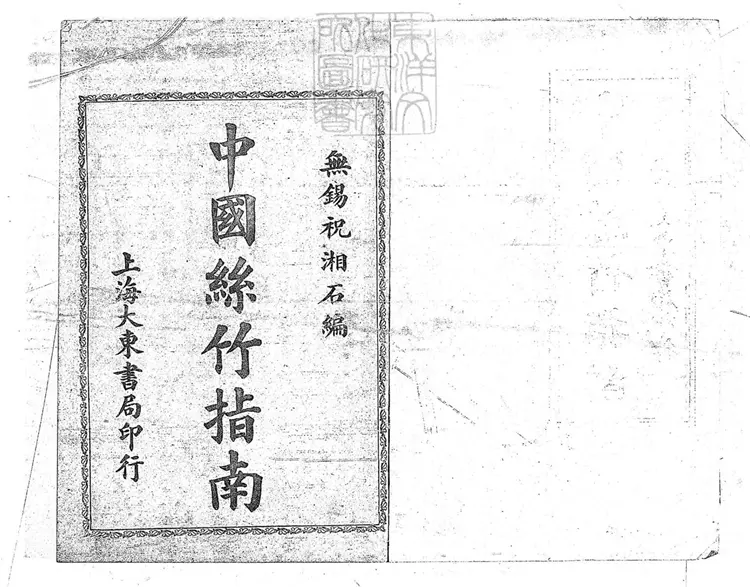 無錫祝湘石編
中國絲竹指南
上海大東書局印行